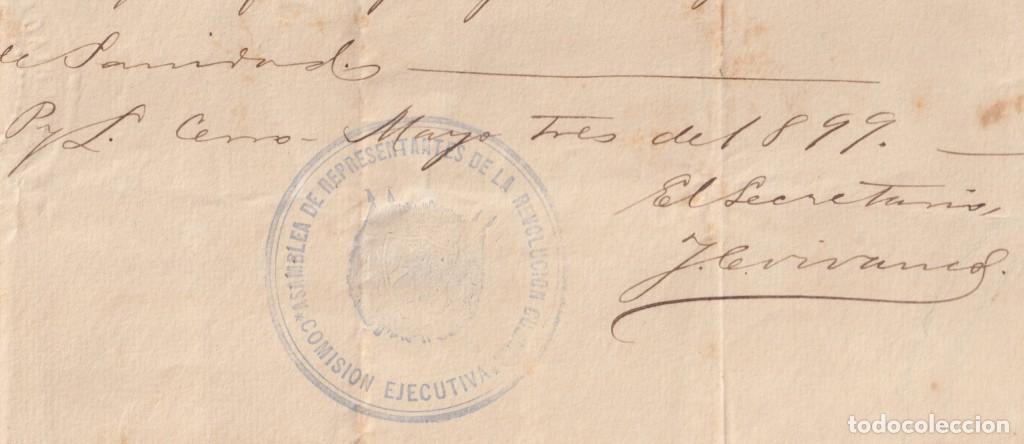 de Sanidad.
P y L. Cerro - Mayo tres del 1899.
El Secretario,
J. C. Vivanco.
*ASAMBLEA DE REPRESENTANTES DE LA REVOLUCION
*COMISION EJECUTIVA.
todocoleccion